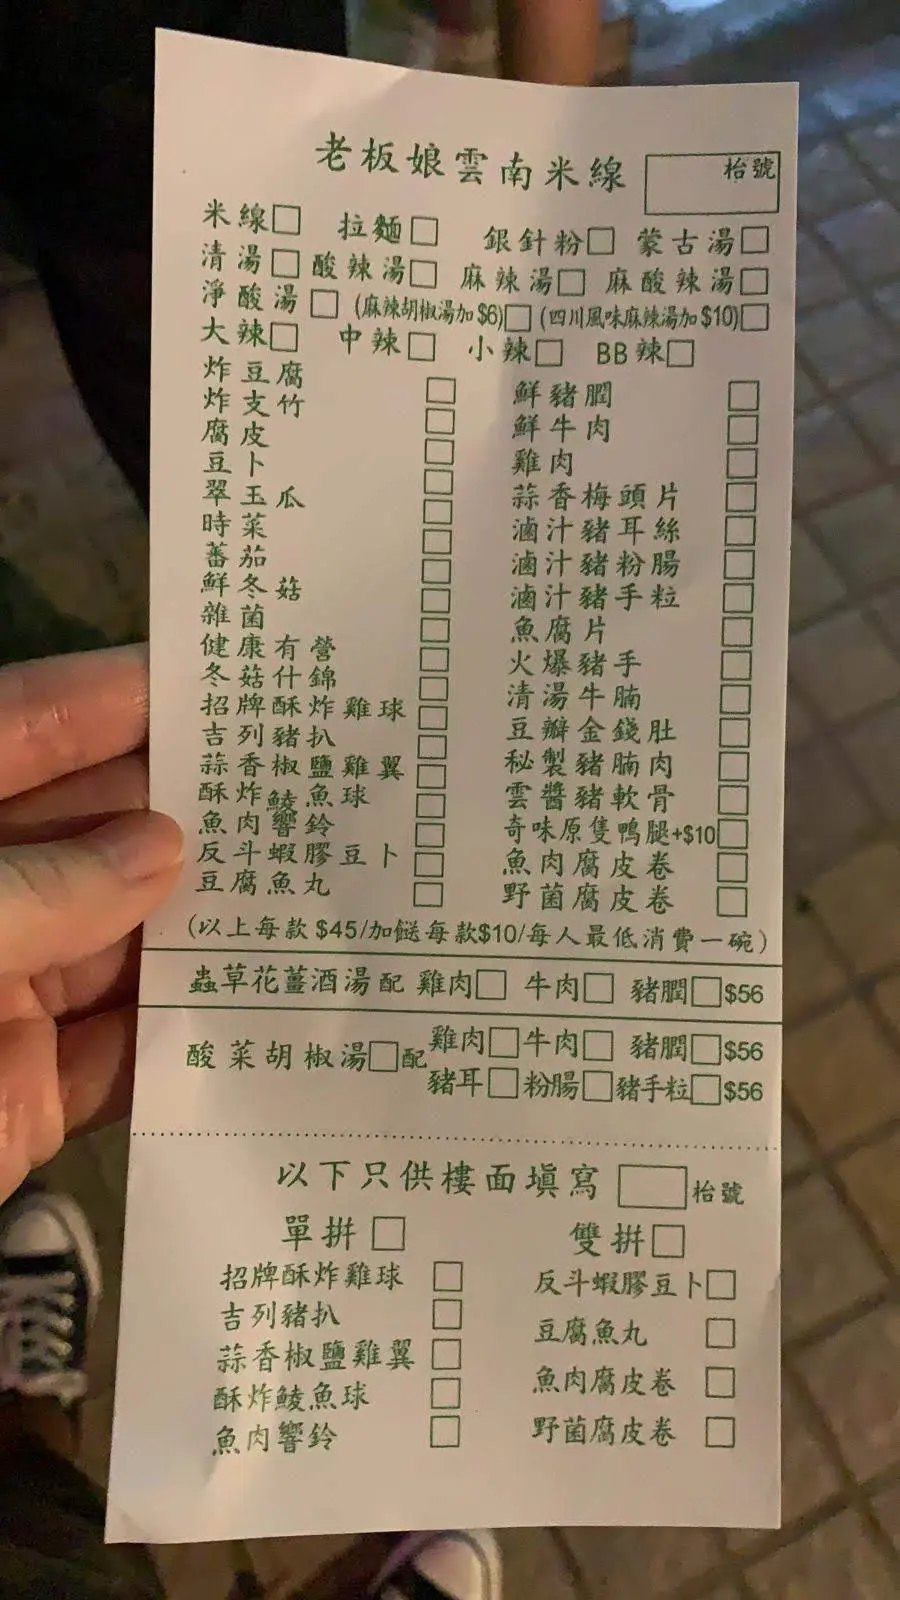 老板娘雲南米線 枱號
米線□ 拉麵□ 銀針粉□ 蒙古湯□
清湯□ 酸辣湯□ 麻辣湯□ 麻酸辣湯□
淨酸湯□ (麻辣胡椒湯加$6)□ (四川風味麻辣湯加$10)□
大辣□ 中辣□ 小辣□ BB辣□
炸豆腐□
炸支竹□
腐皮□
豆卜□
翠玉瓜□
時菜□
蕃茄□
鮮冬菇□
雜菌□
健康有營□
冬菇什錦□
招牌酥炸雞球□
吉列豬扒□
蒜香椒鹽雞翼□
酥炸鯪魚球□
魚肉響鈴□
反斗蝦膠豆卜□
豆腐魚丸□
鮮豬膶□
鮮牛肉□
雞肉□
蒜香梅頭片□
滷汁豬耳絲□
滷汁豬粉腸□
滷汁豬手粒□
魚腐片□
火爆豬手□
清湯牛腩□
豆瓣金錢肚□
秘製豬腩肉□
雲醬豬軟骨□
奇味原隻鴨腿+$10□
魚肉腐皮卷□
野菌腐皮卷□
(以上每款$45/加餸每款$10/每人最低消費一碗)
蟲草花薑酒湯配 雞肉□ 牛肉□ 豬膶□$56
酸菜胡椒湯□配 雞肉□ 牛肉□ 豬膶□$56
豬耳□ 粉腸□ 豬手粒□$56
以下只供樓面填寫 □枱號
單拼□ 雙拼□
招牌酥炸雞球□
吉列豬扒□
蒜香椒鹽雞翼□
酥炸鯪魚球□
魚肉響鈴□
反斗蝦膠豆卜□
豆腐魚丸□
魚肉腐皮卷□
野菌腐皮卷□